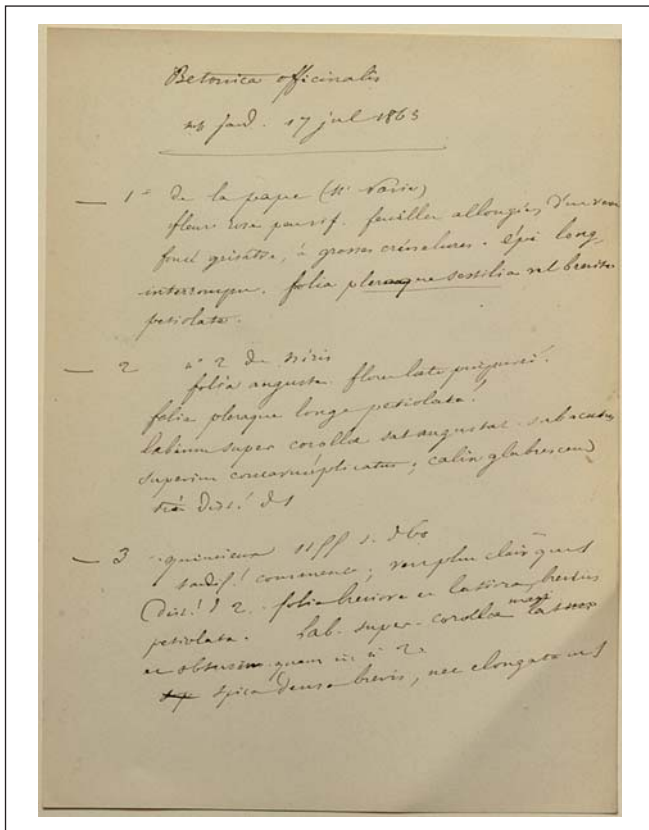 Betonica officinalis
jard. 17 jul 1863
— 1° de la pape (n° Paris)
fleur rose pur f. feuilles allongées d'un vert
foncé grisâtre, à grosses crénelures. épi long,
interrompu. folia pleraque sessilia vel breviter
petiolata.
— 2 n° 2 de
folia angusta. flore late purpurei.
folia pleraque longe petiolata!
labium super corollae sat angustat. subacutum
superius ; calix glabrescend
dist.! d 1
— 3 quincieux
tardif! commence; vert plus clair que 1
dist.! 2. folia breviora et latiora, brevius
petiolata. Lab. super. corollae magis latum
et obtusum quam in n° 2.
spica densa brevis, nec elongata ut 1